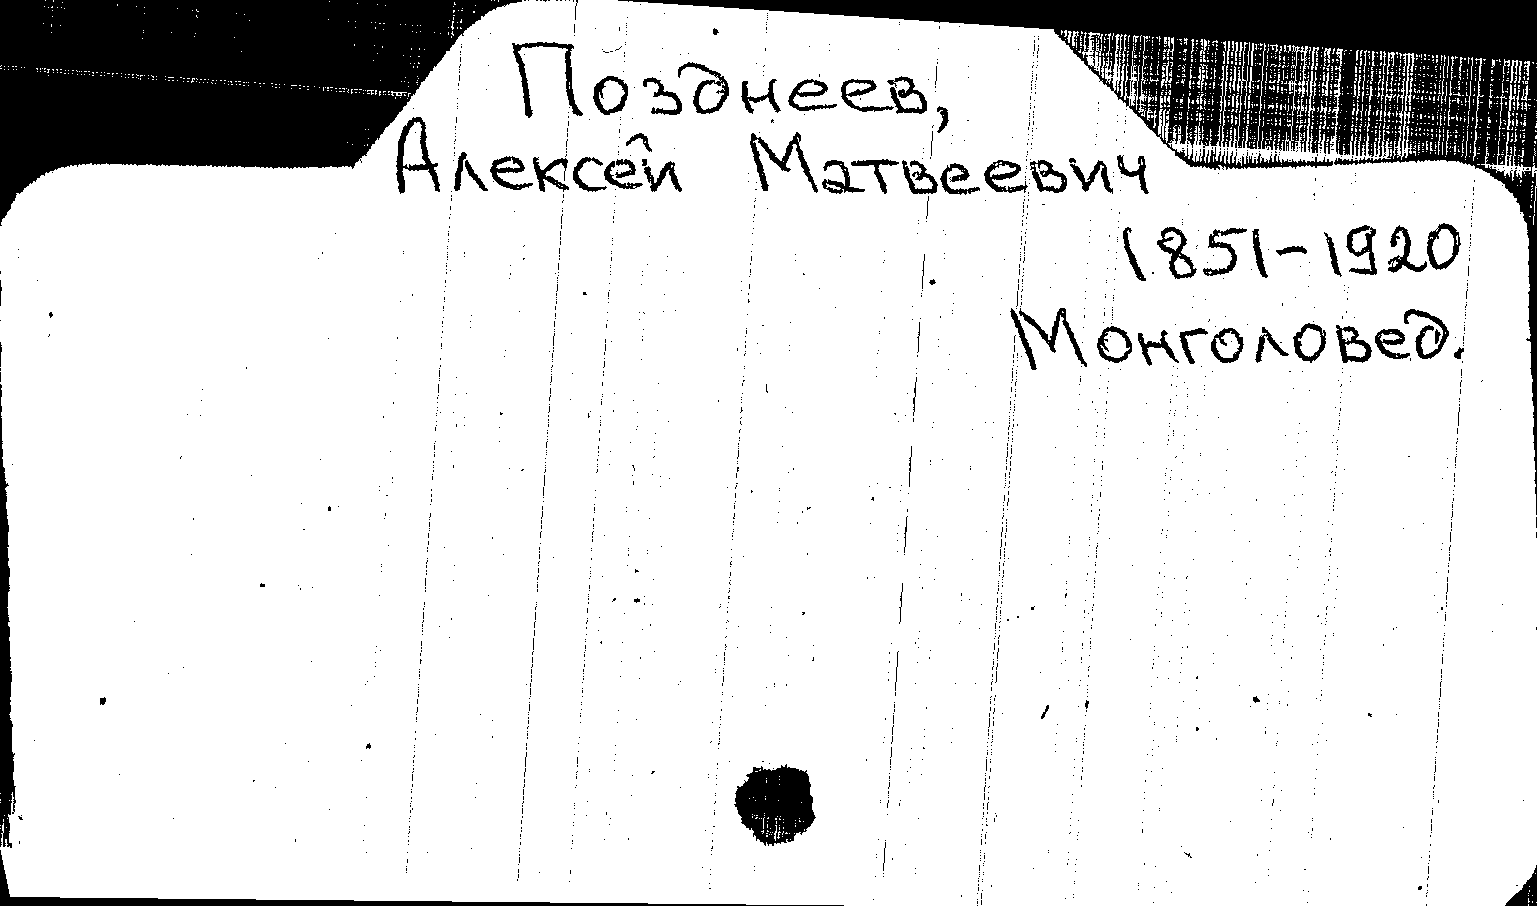 Позднеев,
Алексей Матвеевич
1851-1920
Монголовед.